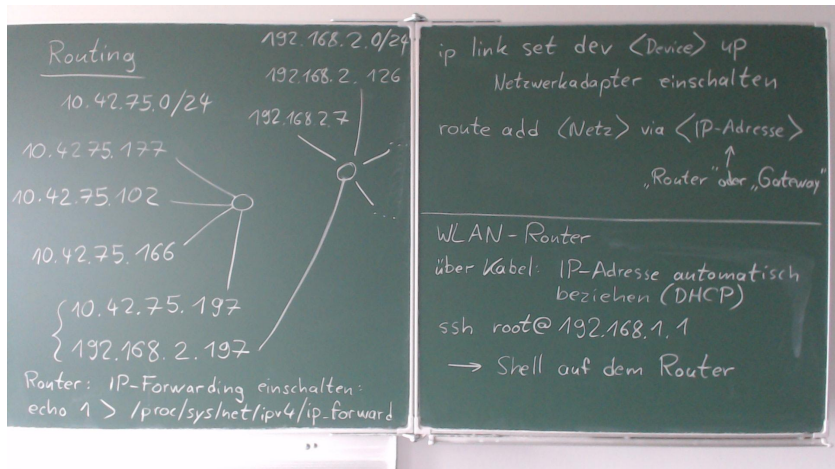 Routing
10.42.75.0/24
10.42.75.177
10.42.75.102
10.42.75.166
10.42.75.197
192.168.2.197
192.168.2.0/24
192.168.2.126
192.168 2.7
Router: IP-Forwarding einschalten:
echo 1 > /proc/sys/net/ipv4/ip_forward
ip link set dev <Device> up
Netzwerkadapter einschalten
route add <Netz> via <IP-Adresse>
„Router" oder „Gateway"
WLAN-Router
über Kabel: IP-Adresse automatisch
beziehen (DHCP)
ssh root@192.168.1.1
→ Shell auf dem Router